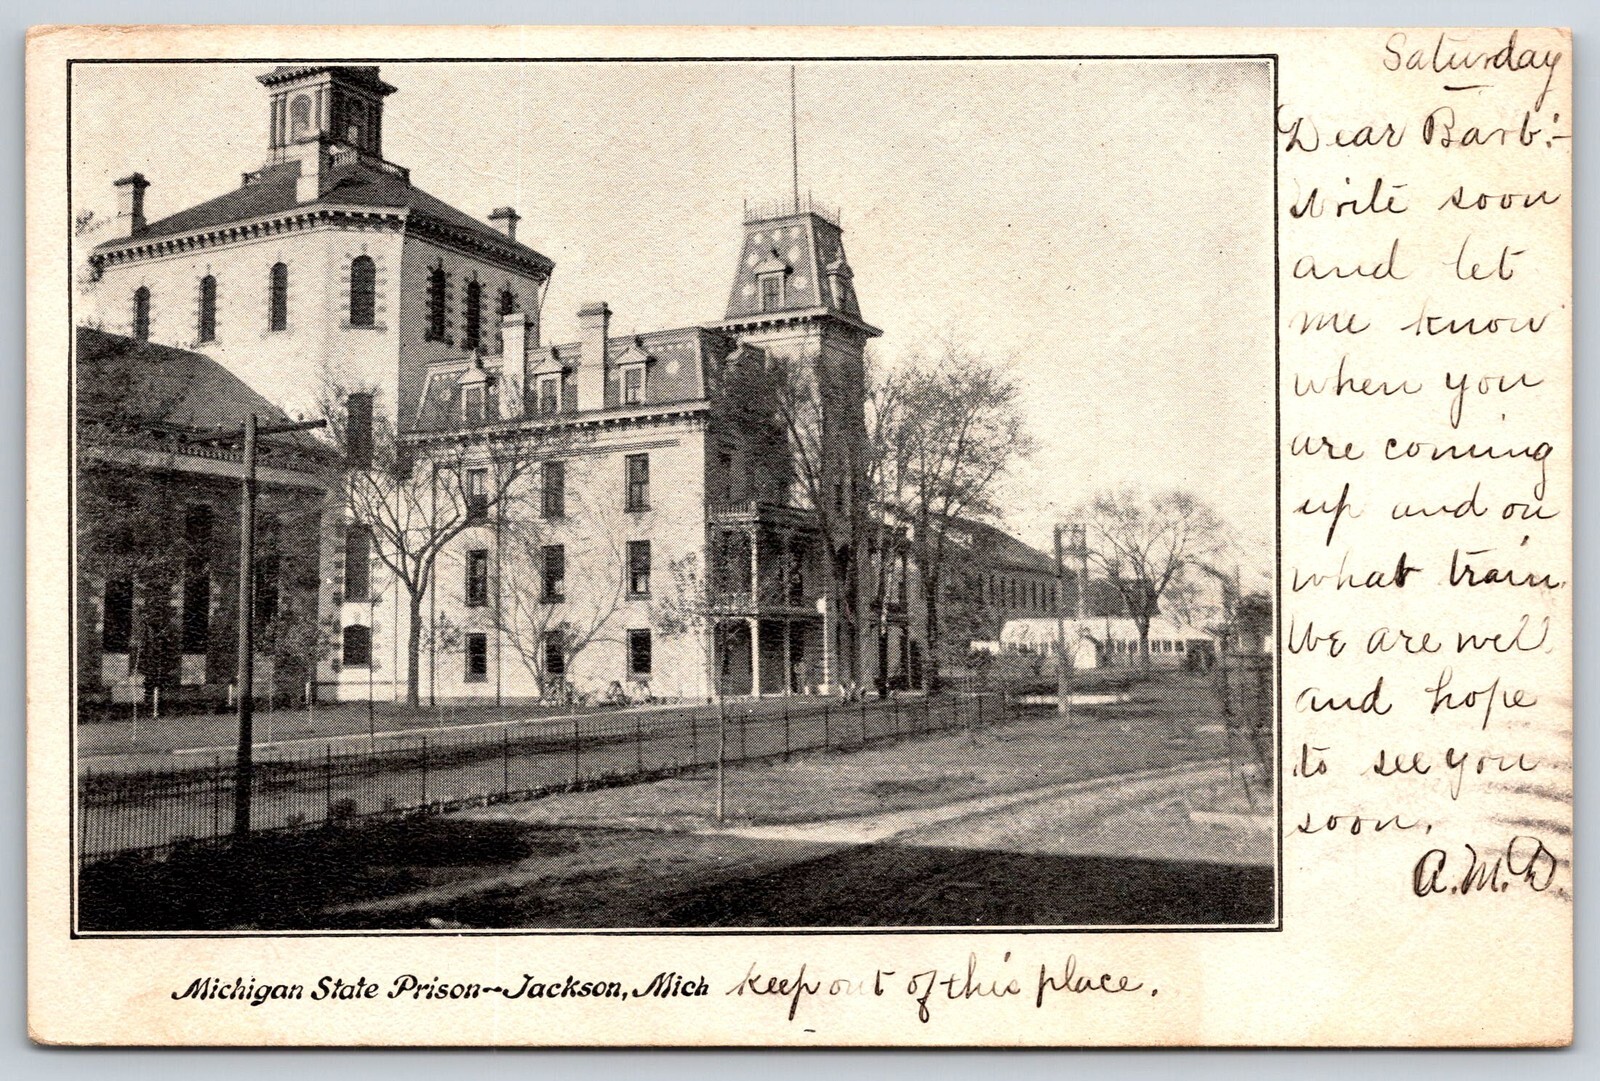 Saturday
Dear Barb:-
Write soon
and let
me know
when you
are coming
up and on
what train.
We are well
and hope
to see you
soon.
A.M.D.
Michigan State Prison~Jackson, Mich keep out of this place.